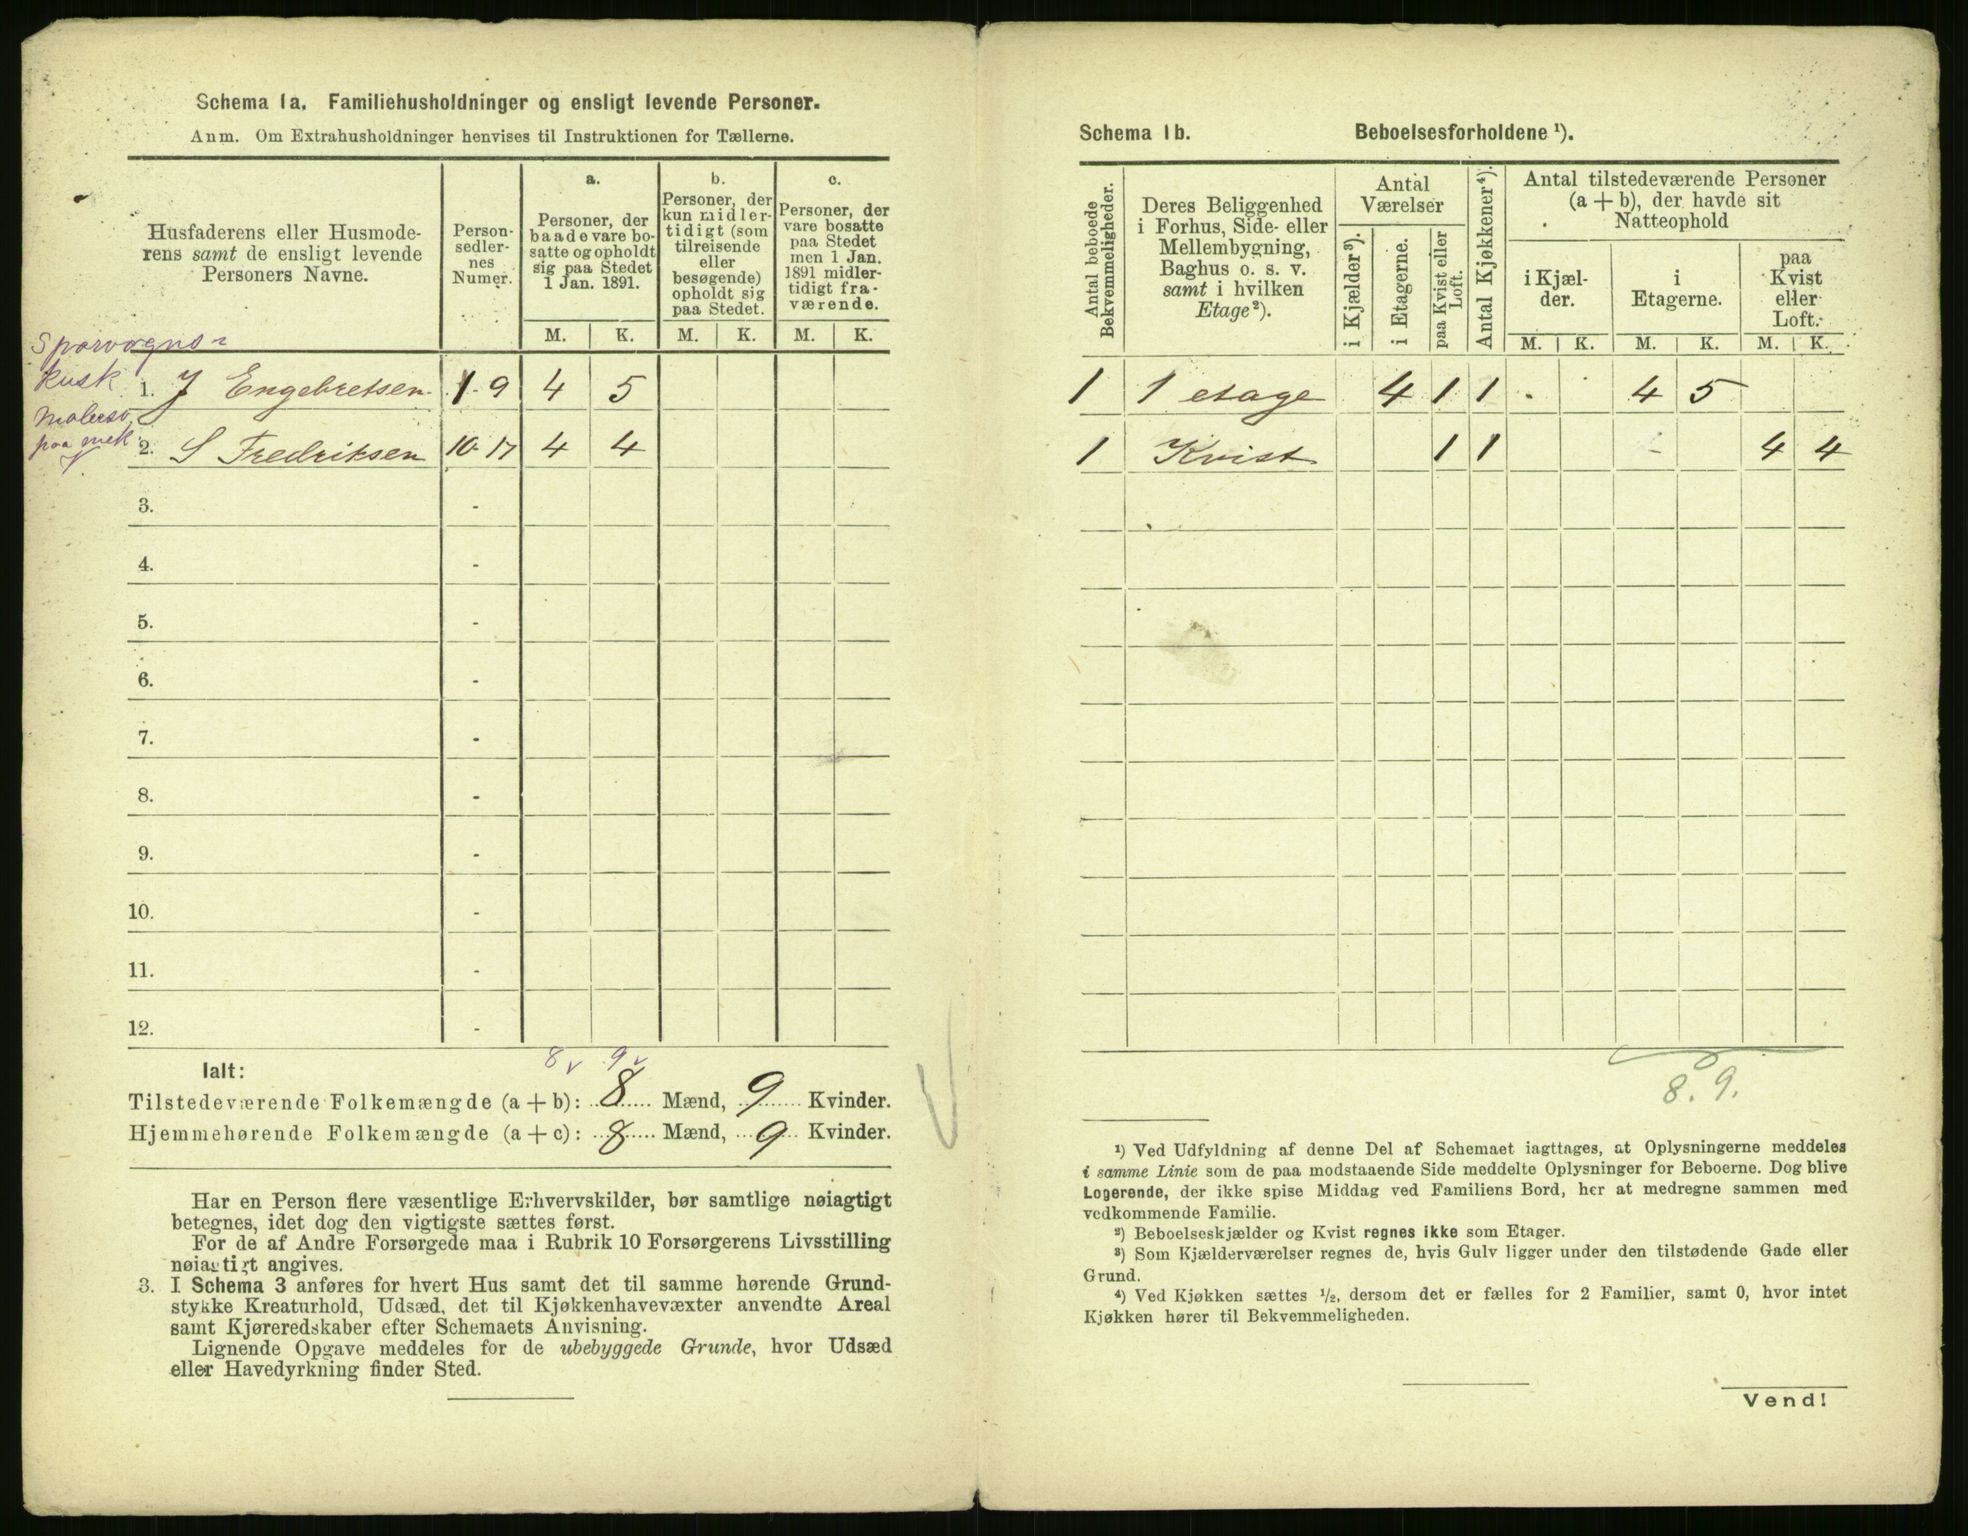 Schema 1a. Familiehusholdninger og ensligt levende Personer.
Anm. Om Extrahusholdninger henvises til Instruktionen for Tællerne.
Husfaderens eller Husmode-
rens samt de ensligt levende
Personers Navne.
Person-
sedler-
nes
Numer.
a.
Personer, der
baade vare bo-
satte og opholdt
sig paa Stedet
1 Jan. 1891.
b.
Personer, der
kun midler-
tidigt (som
tilreisende
eller
besøgende)
opholdt sig
paa Stedet.
c.
Personer, der
vare bosatte
paa Stedet
men 1 Jan.
1891 midler-
tidigt fra-
værende.
M. K. M. K. M. K.
Sporvogns-
kusk
1. J Engebretsen 1-9 4 5
paa mek
2. S Fredriksen 10-17 4 4
3. -
4. -
5. -
6. -
7. -
8. -
9. -
10. -
11. -
12. -
8 v 9 v
Ialt:
Tilstedeværende Folkemængde (a + b): 8 Mænd, 9 Kvinder.
Hjemmehørende Folkemængde (a + c): 8 Mænd, 9 Kvinder.
Har en Person flere væsentlige Erhvervskilder, bør samtlige nøiagtigt
betegnes, idet dog den vigtigste sættes først.
For de af Andre Forsørgede maa i Rubrik 10 Forsørgerens Livsstilling
nøiagtigt angives.
3. I Schema 3 anføres for hvert Hus samt det til samme hørende Grund-
stykke Kreaturhold, Udsæd, det til Kjøkkenhavevæxter anvendte Areal
samt Kjøreredskaber efter Schemaets Anvisning.
Lignende Opgave meddeles for de ubebyggede Grunde, hvor Udsæd
eller Havedyrkning finder Sted.
Schema 1b. Beboelsesforholdene ¹).
Antal beboede
Bekvemmeligheder.
Deres Beliggenhed
i Forhus, Side- eller
Mellembygning,
Baghus o. s. v.
samt i hvilken
Etage²).
Antal
Værelser
i Kjælder³).
i Etagerne.
paa Kvist eller
Loft.
Antal Kjøkkener⁴).
Antal tilstedeværende Personer
(a + b), der havde sit
Natteophold
i Kjæl-
der.
i
Etagerne.
paa
Kvist
eller
Loft.
M. K. M. K. M. K.
1 1 etage 4 1 1 4 5
1 Kvist 1 1 4 4
8. 9.
¹) Ved Udfyldning af denne Del af Schemaet iagttages, at Oplysningerne meddeles
i samme Linie som de paa modstaaende Side meddelte Oplysninger for Beboerne. Dog blive
Logerende, der ikke spise Middag ved Familiens Bord, her at medregne sammen med
vedkommende Familie.
²) Beboelseskjælder og Kvist regnes ikke som Etager.
³) Som Kjælderværelser regnes de, hvis Gulv ligger under den tilstødende Gade eller
Grund.
⁴) Ved Kjøkken sættes ½, dersom det er fælles for 2 Familier, samt 0, hvor intet
Kjøkken hører til Bekvemmeligheden.
Vend!